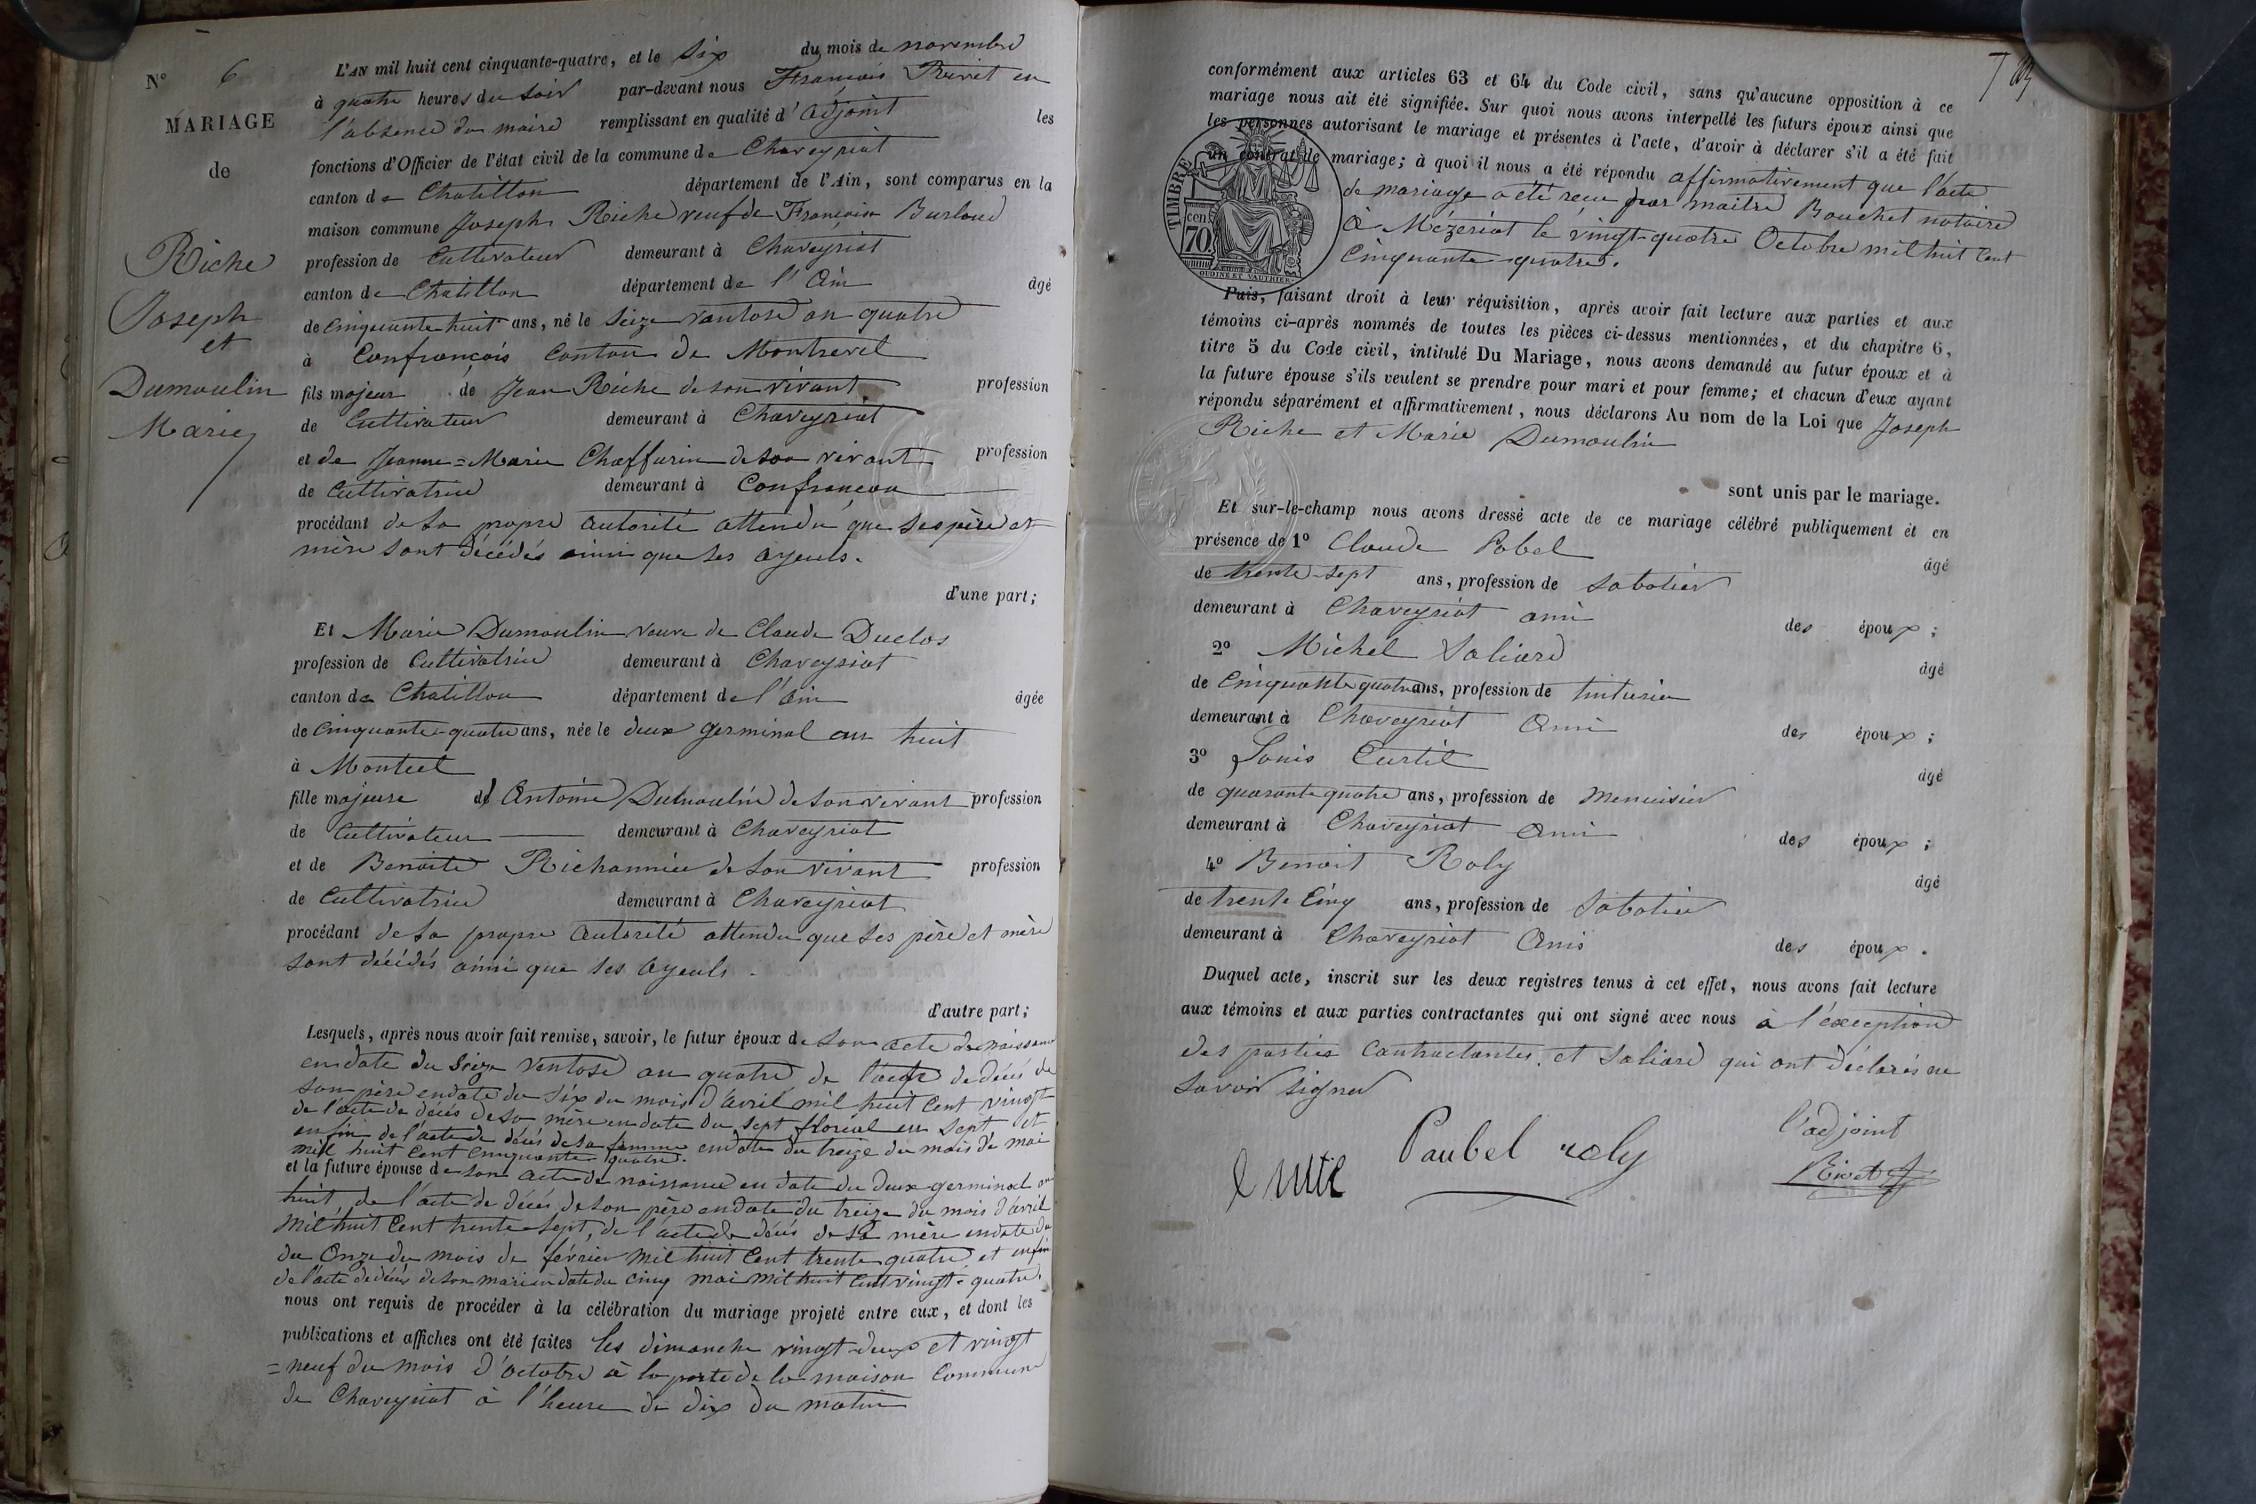 N° 6
MARIAGE
de
Riche
Joseph
et
Dumoulin
Marie
L'AN mil huit cent cinquante-quatre, et le six du mois de novembre
à quatre heures du soir par-devant nous François Rivet en
l'absence du maire remplissant en qualité d'adjoint les
fonctions d'Officier de l'état civil de la commune de Chaveyriat
canton de Chatillon département de l'Ain, sont comparus en la
maison commune Joseph Riche veuf de Françoise Burloud
profession de Cultivateur demeurant à Chaveyriat
canton de Chatillon département de l'Ain âgé
de Cinquante huit ans, né le seize ventose an quatre
à Confrançois Canton de Montrevel
fils majeur de Jean Riche de son vivant profession
de Cultivateur demeurant à Chaveyriat
et de Jeanne=Marie Chaffurin de son vivant profession
de Cultivatrice demeurant à Confrançon
procédant de sa propre autorité attendu que ses père et
mère sont décédés ainsi que ses ayeuls.
d'une part;
Et Marie Dumoulin veuve de Claude Duclos
profession de Cultivatrice demeurant à Chaveyriat
canton de Chatillon département de l'ain âgée
de Cinquante-quatre ans, née le deux germinal an huit
à Montcel
fille majeure de Antoine Dumoulin de son vivant profession
de Cultivateur demeurant à Chaveyriat
et de Benoite Richonnier de son vivant profession
de Cultivatrice demeurant à Chaveyriat
procédant de sa propre autorité attendu que ses père et mère
sont décédés ainsi que ses ayeuls.
d'autre part;
Lesquels, après nous avoir fait remise, savoir, le futur époux de son acte de naissance
en date du seize ventose an quatre de l'acte de décés de
son père en date du six du mois d'avril mil huit cent vingt
de l'acte de décés de sa mère en date du sept floréal an sept et
enfin de l'acte de décés de sa femme en date du treize du mois de mai
mil huit cent cinquante quatre.
et la future épouse de son acte de naissance en date du deux germinal an
huit de l'acte de décés de son père en date du treize du mois d'avril
mil huit Cent trente-sept, de l'acte de décés de sa mère en date du
du Onze du mois de février mil huit Cent trente quatre et enfin
de l'acte de décés de son mari en date du cinq mai mil huit Cent vingt-quatre.
nous ont requis de procéder à la célébration du mariage projeté entre eux, et dont les
publications et affiches ont été faites les dimanche vingt-deux et vingt
=neuf du mois d'octobre à la porte de la maison Commune
de Chaveyriat à l'heure de dix du matin
conformément aux articles 63 et 64 du Code civil, sans qu'aucune opposition à ce
mariage nous ait été signifiée. Sur quoi nous avons interpellé les futurs époux ainsi que
les personnes autorisant le mariage et présentes à l'acte, d'avoir à déclarer s'il a été fait
un contrat de mariage; à quoi il nous a été répondu affirmativement que l'acte
de mariage a été reçu par maître Bouchet notaire
à Mézériat le vingt-quatre Octobre mil huit Cent
Cinquante-quatre.
TIMBRE
cen
70
OUDINE ET VAUTHIER
Puis, faisant droit à leur réquisition, après avoir fait lecture aux parties et aux
témoins ci-après nommés de toutes les pièces ci-dessus mentionnées, et du chapitre 6,
titre 5 du Code civil, intitulé Du Mariage, nous avons demandé au futur époux et à
la future épouse s'ils veulent se prendre pour mari et pour femme; et chacun d'eux ayant
répondu séparément et affirmativement, nous déclarons Au nom de la Loi que Joseph
Riche et Marie Dumoulin
sont unis par le mariage.
Et sur-le-champ nous avons dressé acte de ce mariage célébré publiquement et en
présence de 1° Claude Pobel âgé
de trente-sept ans, profession de sabotier
demeurant à Chaveyriat ami des époux;
2° Michel Saliard âgé
de Cinquante quatre ans, profession de tinturier
demeurant à Chaveyriat Ami des époux;
3° Louis Curtil âgé
de quarante quatre ans, profession de menuisier
demeurant à Chaveyriat Ami des époux;
4° Benoit Roly âgé
de trente Cinq ans, profession de Sabotier
demeurant à Chaveyriat Amis des époux.
Duquel acte, inscrit sur les deux registres tenus à cet effet, nous avons fait lecture
aux témoins et aux parties contractantes qui ont signé avec nous à l'exception
des parties Contractantes et Saliard qui ont déclarés ne
savoir signer
l'adjoint
Paubel roly
Rivet